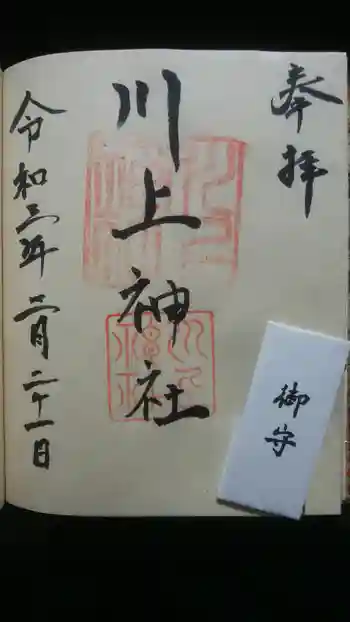 奉拝
川上神社
令和三年二月二十一日
御守